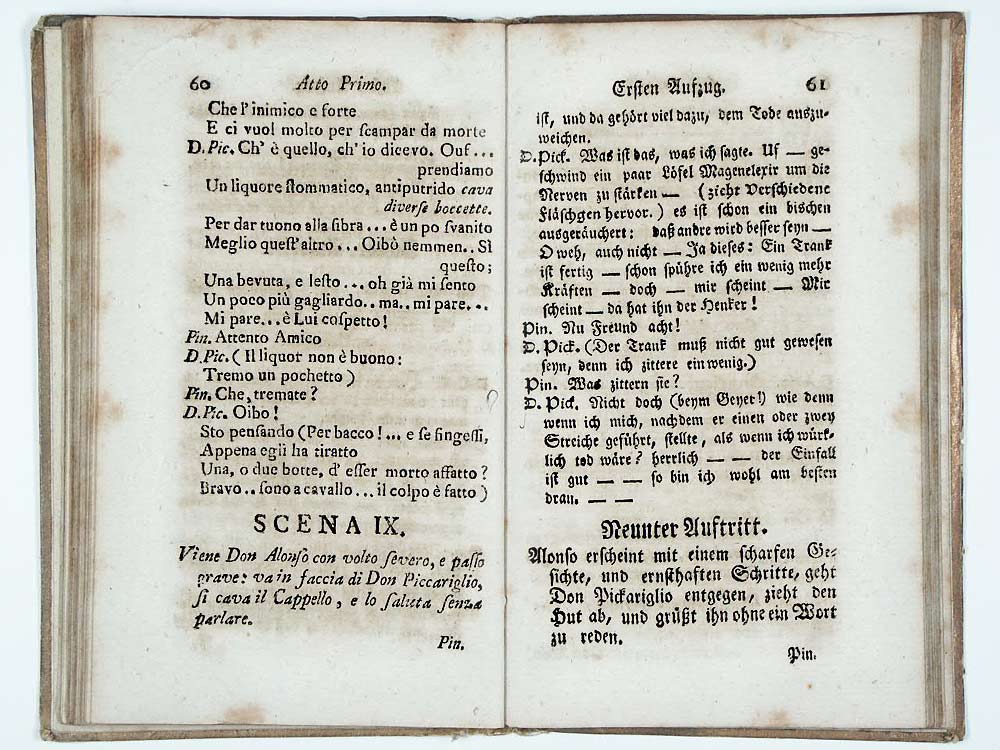 60 Atto Primo.
Che l' inimico e forte
E ci vuol molto per ſcampar da morte
D. Pic. Ch' è quello, ch' io dicevo. Ouf...
prendiamo
Un liquore ſtommatico, antiputrido cava
diverſe boccette.
Per dar tuono alla fibra... è un po ſvanito
Meglio queſt' altro... Oibò nemmen.. Sì
queſto;
Una bevuta, e leſto... oh già mi ſento
Un poco più gagliardo.. ma.. mi pare...
Mi pare... è Lui coſpetto!
Pin. Attento Amico
D. Pic. ( Il liquor non è buono:
Tremo un pochetto )
Pin. Che, tremate?
D. Pic. Oibo!
Sto penſando (Per bacco!... e ſe fingeſſi,
Appena egli ha tiratto
Una, o due botte, d' eſſer morto affatto?
Bravo.. ſono a cavallo... il colpo è fatto )
SCENA IX.
Viene Don Alonſo con volto ſevero, e paſſo
grave: va in faccia di Don Piccariglio,
ſi cava il Cappello, e lo ſaluta ſenza
parlare.
Pin.
Erſten Aufzug. 61
iſt, und da gehört viel dazu, dem Tode auszu-
weichen.
D. Pick. Was iſt das, was ich ſagte. Uf — ge-
ſchwind ein paar Löfel Magenelexir um die
Nerven zu ſtärken — (zieht Verſchiedene
Fläſchgen hervor.) es iſt ſchon ein bischen
ausgeräuchert: daß andre wird beſſer ſeyn —
O weh, auch nicht — Ja dieſes: Ein Trank
iſt fertig — ſchon ſpühre ich ein wenig mehr
Kräften — doch — mir ſcheint — Mir
ſcheint — da hat ihn der Henker!
Pin. Nu Freund acht!
D. Pick. (Der Trank muß nicht gut geweſen
ſeyn, denn ich zittere ein wenig.)
Pin. Was zittern ſie?
D. Pick. Nicht doch (beym Geyer!) wie denn
wenn ich mich, nachdem er einen oder zwey
Streiche geführt, ſtellte, als wenn ich würk-
lich tod wäre? herrlich — — der Einfall
iſt gut — — ſo bin ich wohl am beſten
dran. — —
Neunter Auftritt.
Alonſo erſcheint mit einem ſcharfen Ge-
ſichte, und ernſthaften Schritte, geht
Don Pickariglio entgegen, zieht den
Hut ab, und grüßt ihn ohne ein Wort
zu reden.
Pin.